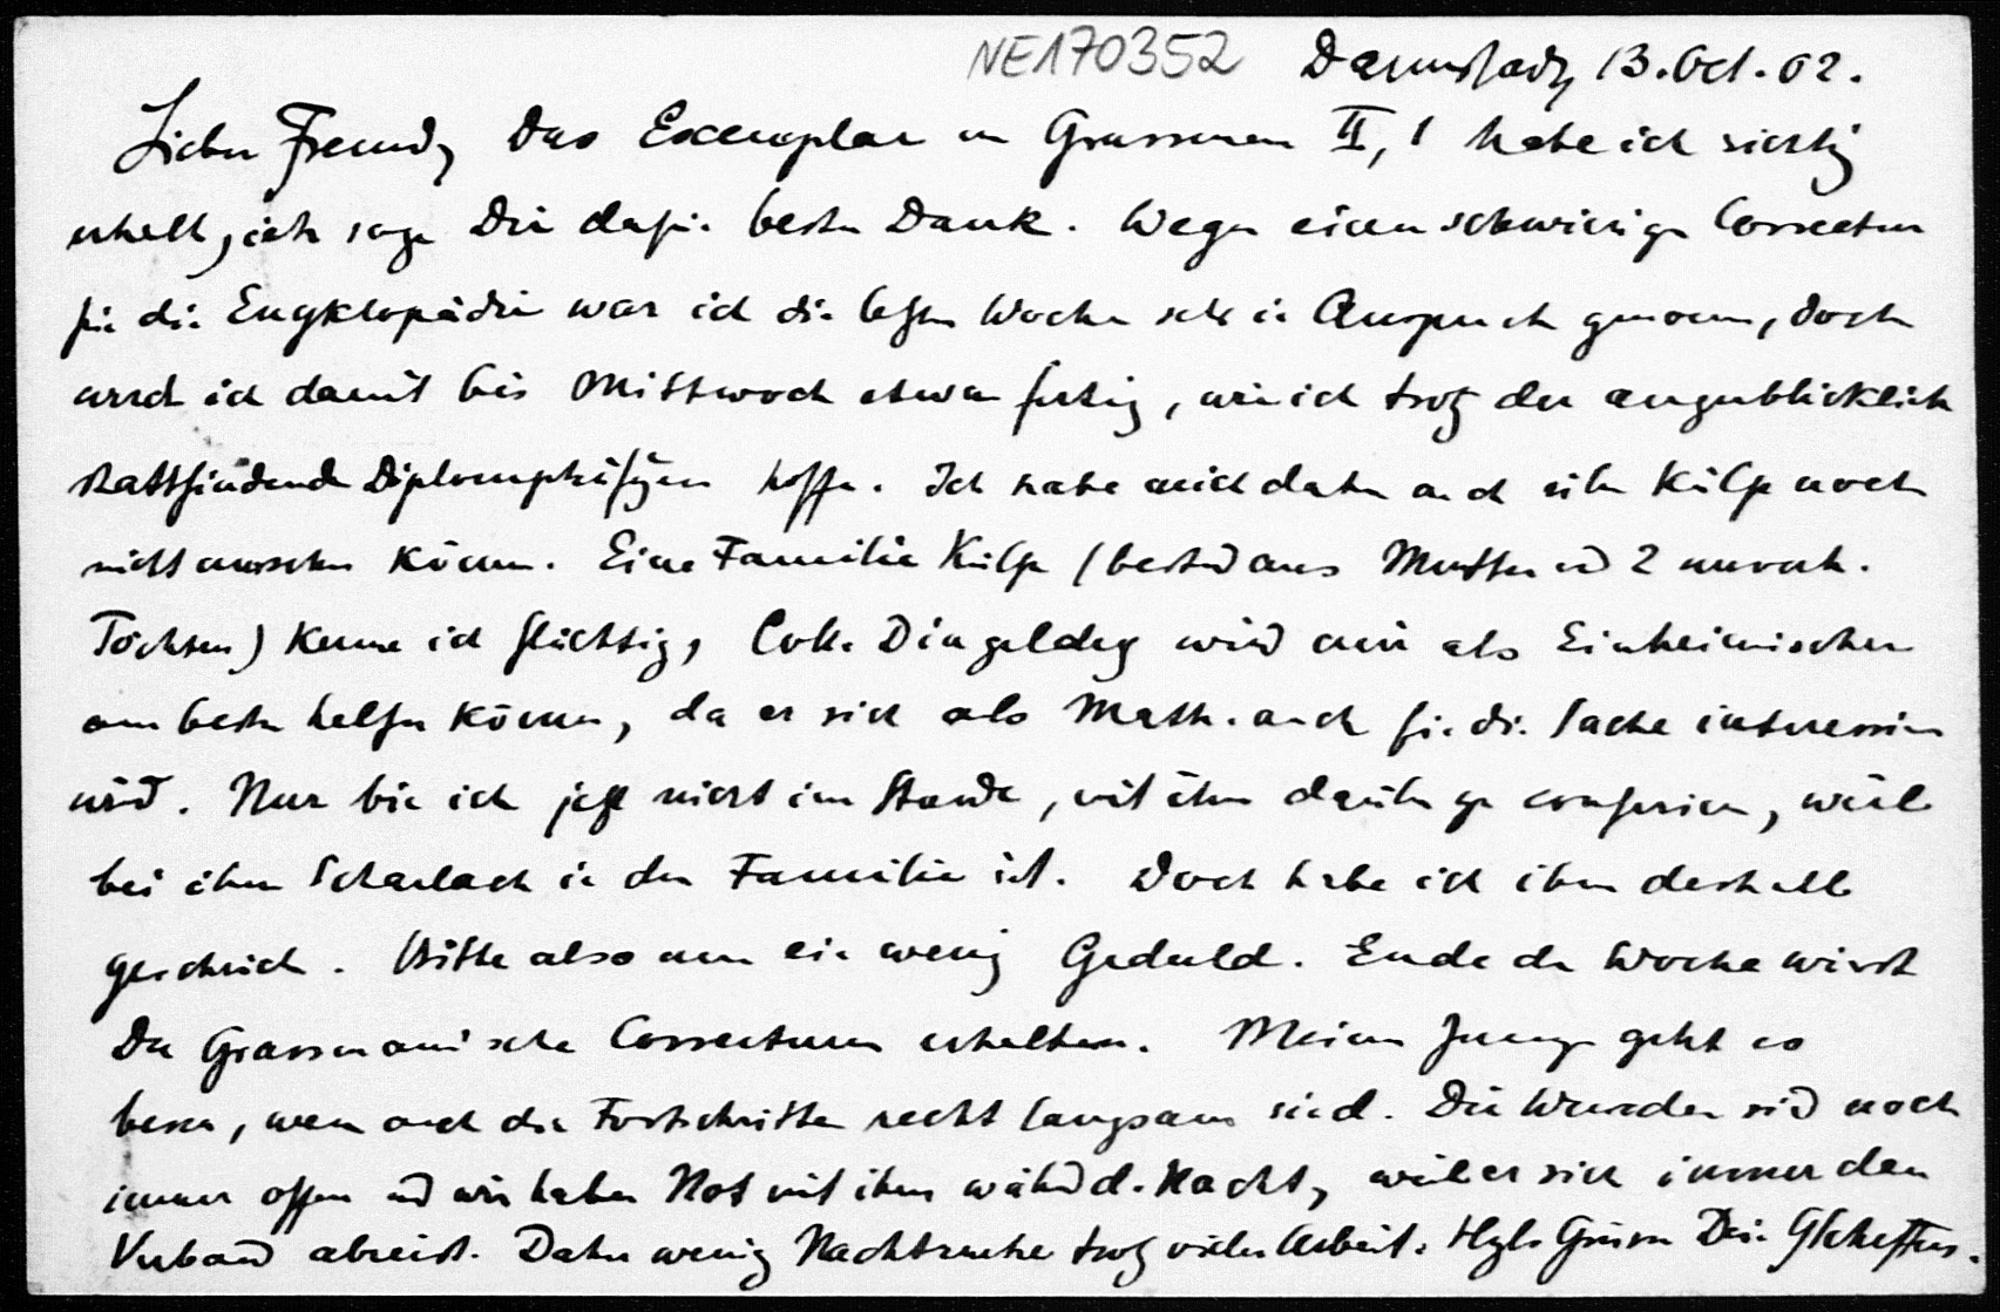 NE170352 Darmstadt, 13. Oct. 02.
Lieber Freund, Das Exemplar von Grassmann II, 1 habe ich richtig
erhalt, ich sage Dir dafür besten Dank. Wegen einer schwierigen Correctur
für die Encyklopädie war ich die letzten Wochen sehr in Anspruch genomm, doch
werde ich damit bis Mittwoch etwa fertig, wie ich trotz der augenblicklich
stattfindenden Diplomprüfungen hoffe. Ich habe mich daher auch über Külp noch
nicht umsehen können. Eine Familie Külp (bestehd aus Mutter und 2 unverh.
Töchtern) kenne ich flüchtig, Coll. Dingeldey wird mir als Einheimischer
am besten helfen können, da er sich als Math. auch für die Sache interessiren
wird. Nur bin ich jetzt nicht im Stande, mit ihm darüber zu conferiren, weil
bei ihm Scharlach in der Familie ist. Doch habe ich ihm deshalb
geschrieb. Bitte also um ein wenig Geduld. Ende der Woche wirst
Du Grassmannische Correcturen erhalten. Meinem Jungen geht es
besser, wenn auch die Fortschritte recht langsam sind. Die Wunden sind noch
immer offen und wir haben Not mit ihm währd d. Nacht, weil er sich immer den
Verband abreisst. Daher wenig Nachtruhe trotz vieler Arbeit. Hzl. Grüsse Dein GScheffers.